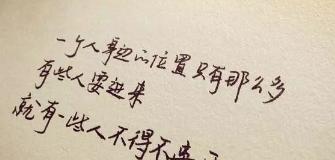 一个人身边的位置只有那么多
有些人要进来
就有一些人不得不离